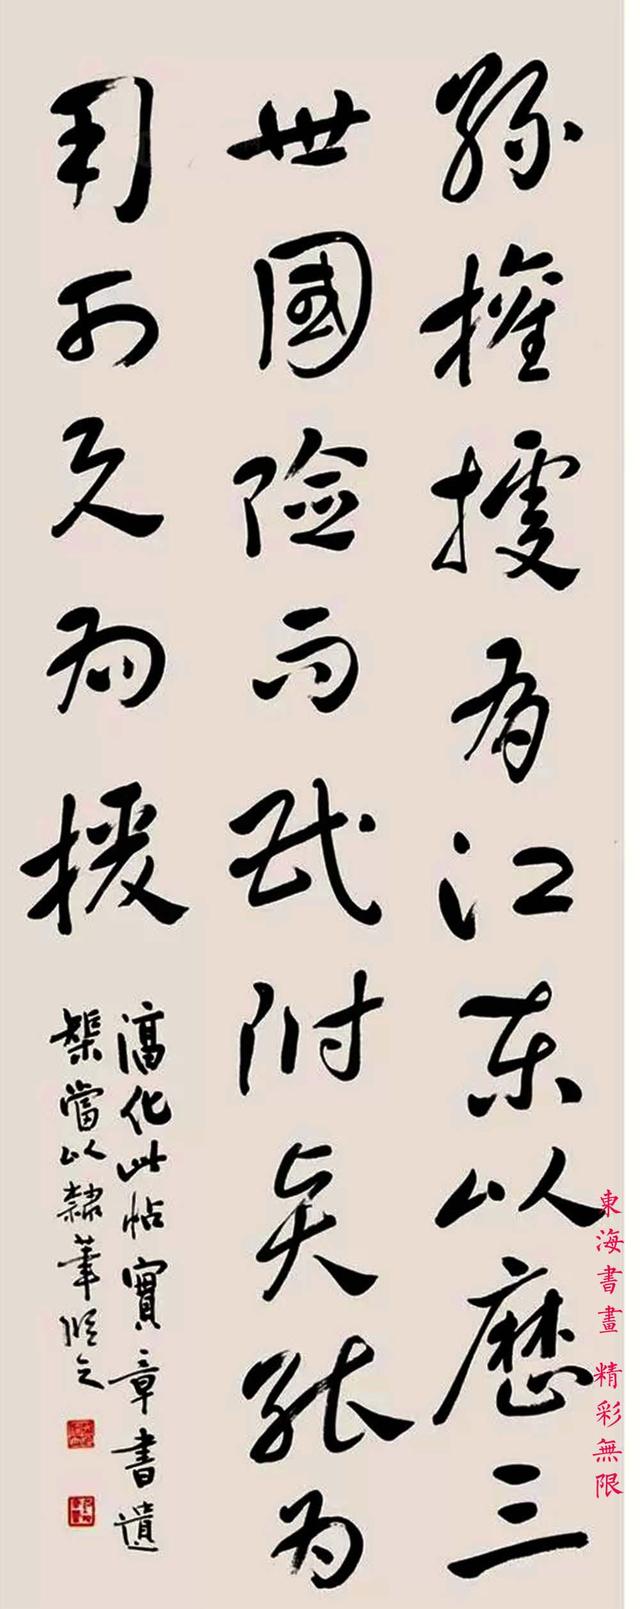 孫權據有江東以歷三
世國險而民附能為
用可為援
淳化此帖實章書遺
榘當以隸筆臨之
東海書畫 精彩無限